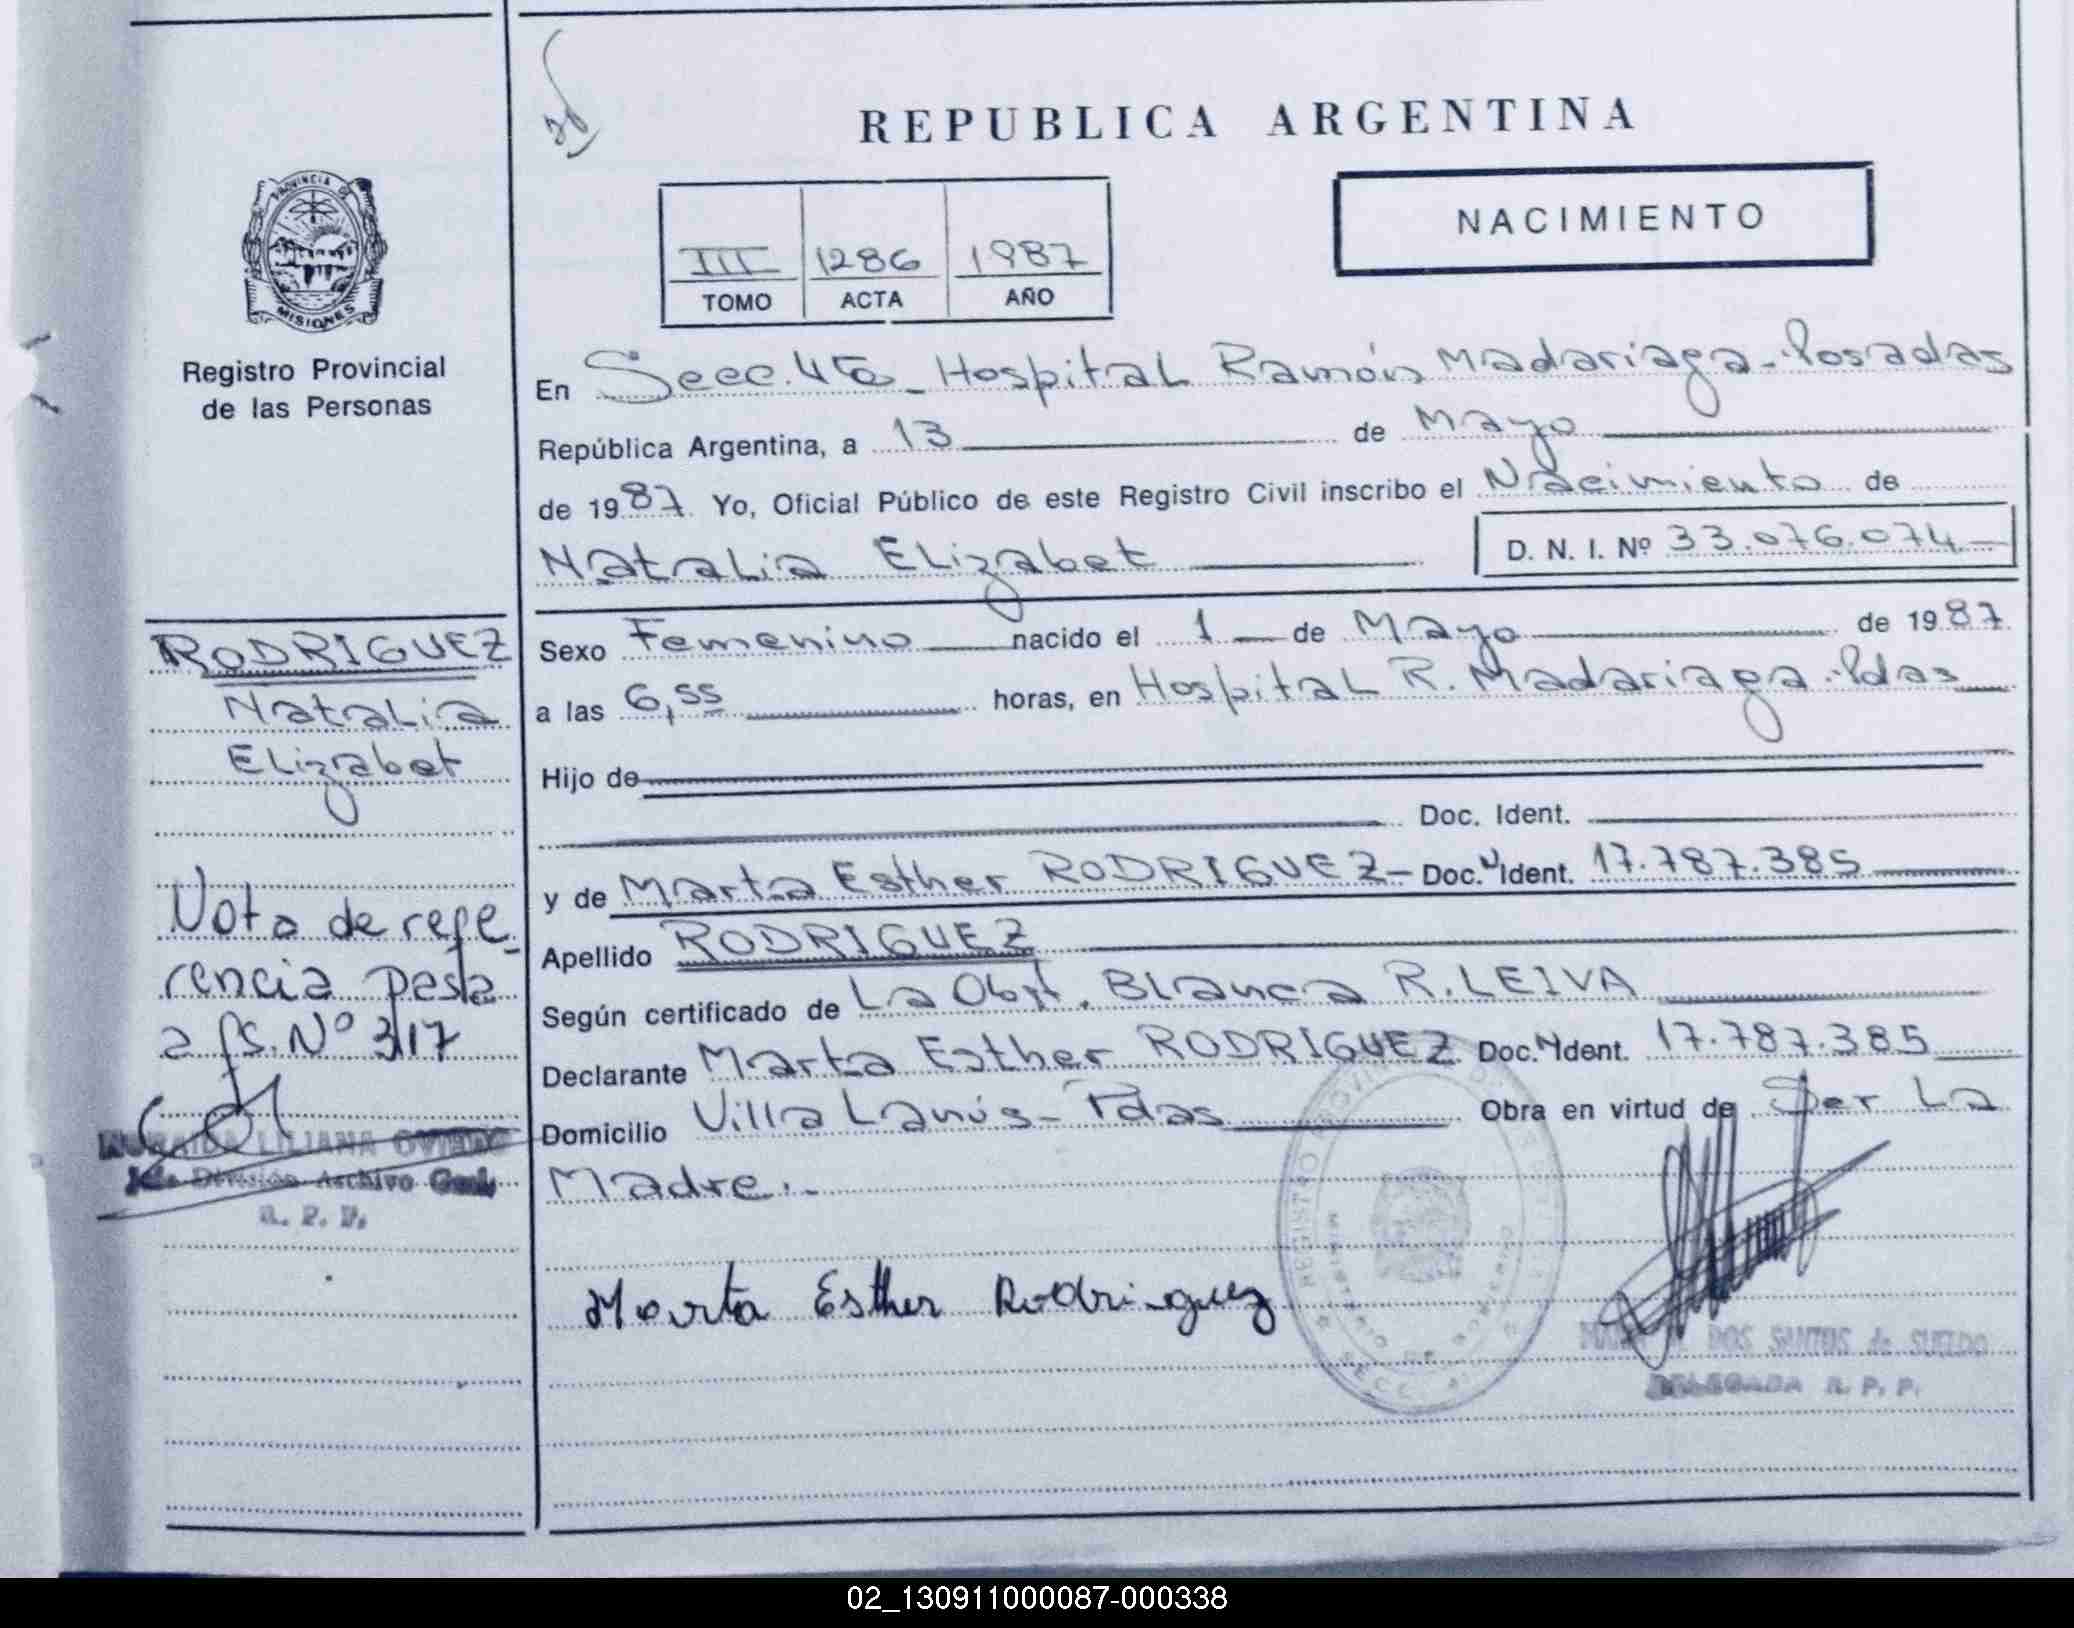 REPUBLICA ARGENTINA
NACIMIENTO
III 1286 1987
TOMO ACTA AÑO
PROVINCIA DE
MISIONES
Registro Provincial
de las Personas
En Secc. 4ta - Hospital Ramón Madariaga - Posadas
República Argentina, a 13 de Mayo
de 1987 Yo, Oficial Público de este Registro Civil inscribo el Nacimiento de
Natalia Elizabet
D. N. I. Nº 33.076.074.-
Sexo Femenino nacido el 1 de Mayo de 1987
a las 6,55 horas, en Hospital R. Madariaga. Pdas
Hijo de
Doc. Ident.
y de Marta Esther RODRIGUEZ - Doc. Ident. 17.787.385
Apellido RODRIGUEZ
Según certificado de La Obst. Blanca R. LEIVA
Declarante Marta Esther RODRIGUEZ Doc. Ident. 17.787.385
Domicilio Villa Lanús - Pdas Obra en virtud de Ser La
Madre.-
Marta Esther Rodriguez
DOS SANTOS de SUELDO
DELEGADA R. P. P.
RODRIGUEZ
Natalia
Elizabet
Nota de refe-
rencia pasta
a fs. Nº 317
LILIANA OVIEDO
División Archivo Gral.
R. P. P.
02_130911000087-000338